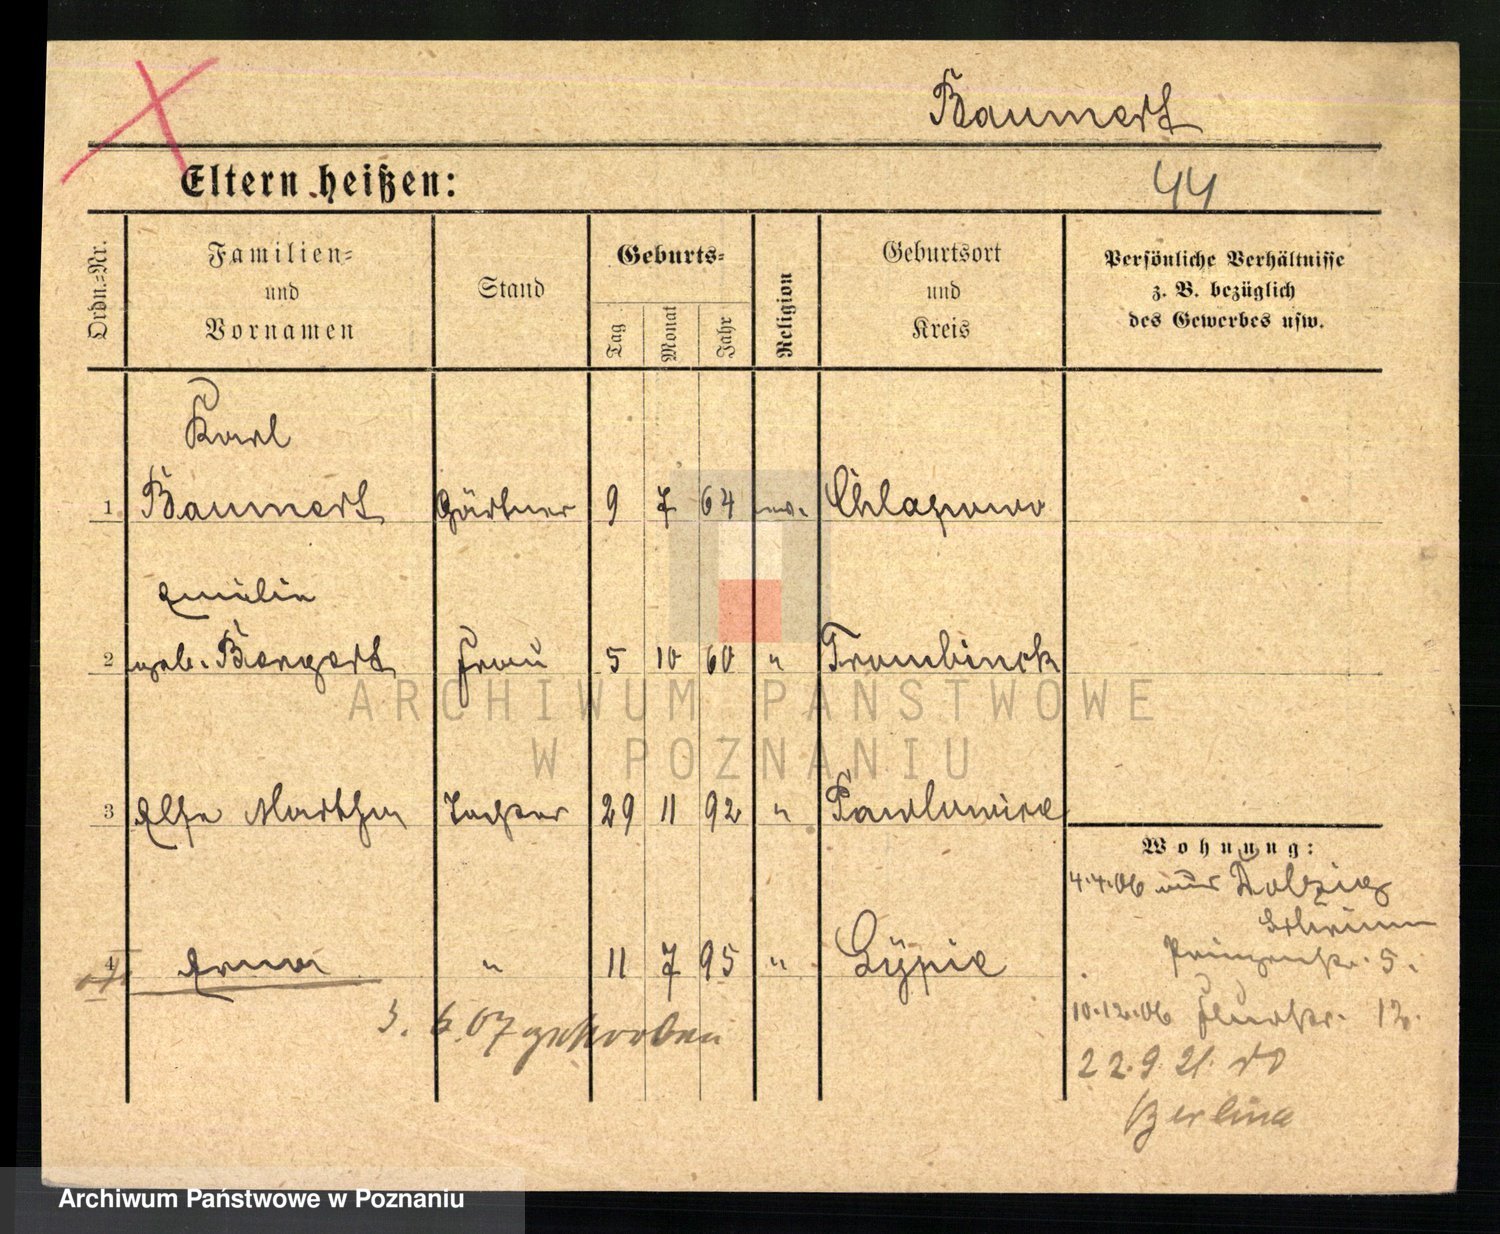 Baumert
Eltern heißen:
44
Ordn.-Nr.
Familien-
und
Vornamen
Stand
Geburts-
Tag
Monat
Jahr
Religion
Geburtsort
und
Kreis
Persönliche Verhältnisse
z. B. bezüglich
des Gewerbes usw.
Karl
1 Baumert Gärtner 9 7 64 ev. Chlapowo
Emilie
2 geb. Bergert Frau 5 10 60 " Trombinek
3 Else Martha Tochter 29 11 92 " Pawlowice
Wohnung:
4.4.06 aus Dolzig
Schrimm
4 Erna " 11 7 95 "
Prinzenstr. 5.
3. 6. 07 gestorben
10.12.06 Flurstr. 12.
22.9.21. do
Berlina
ARCHIWUM PAŃSTWOWE
W POZNANIU
Archiwum Państwowe w Poznaniu